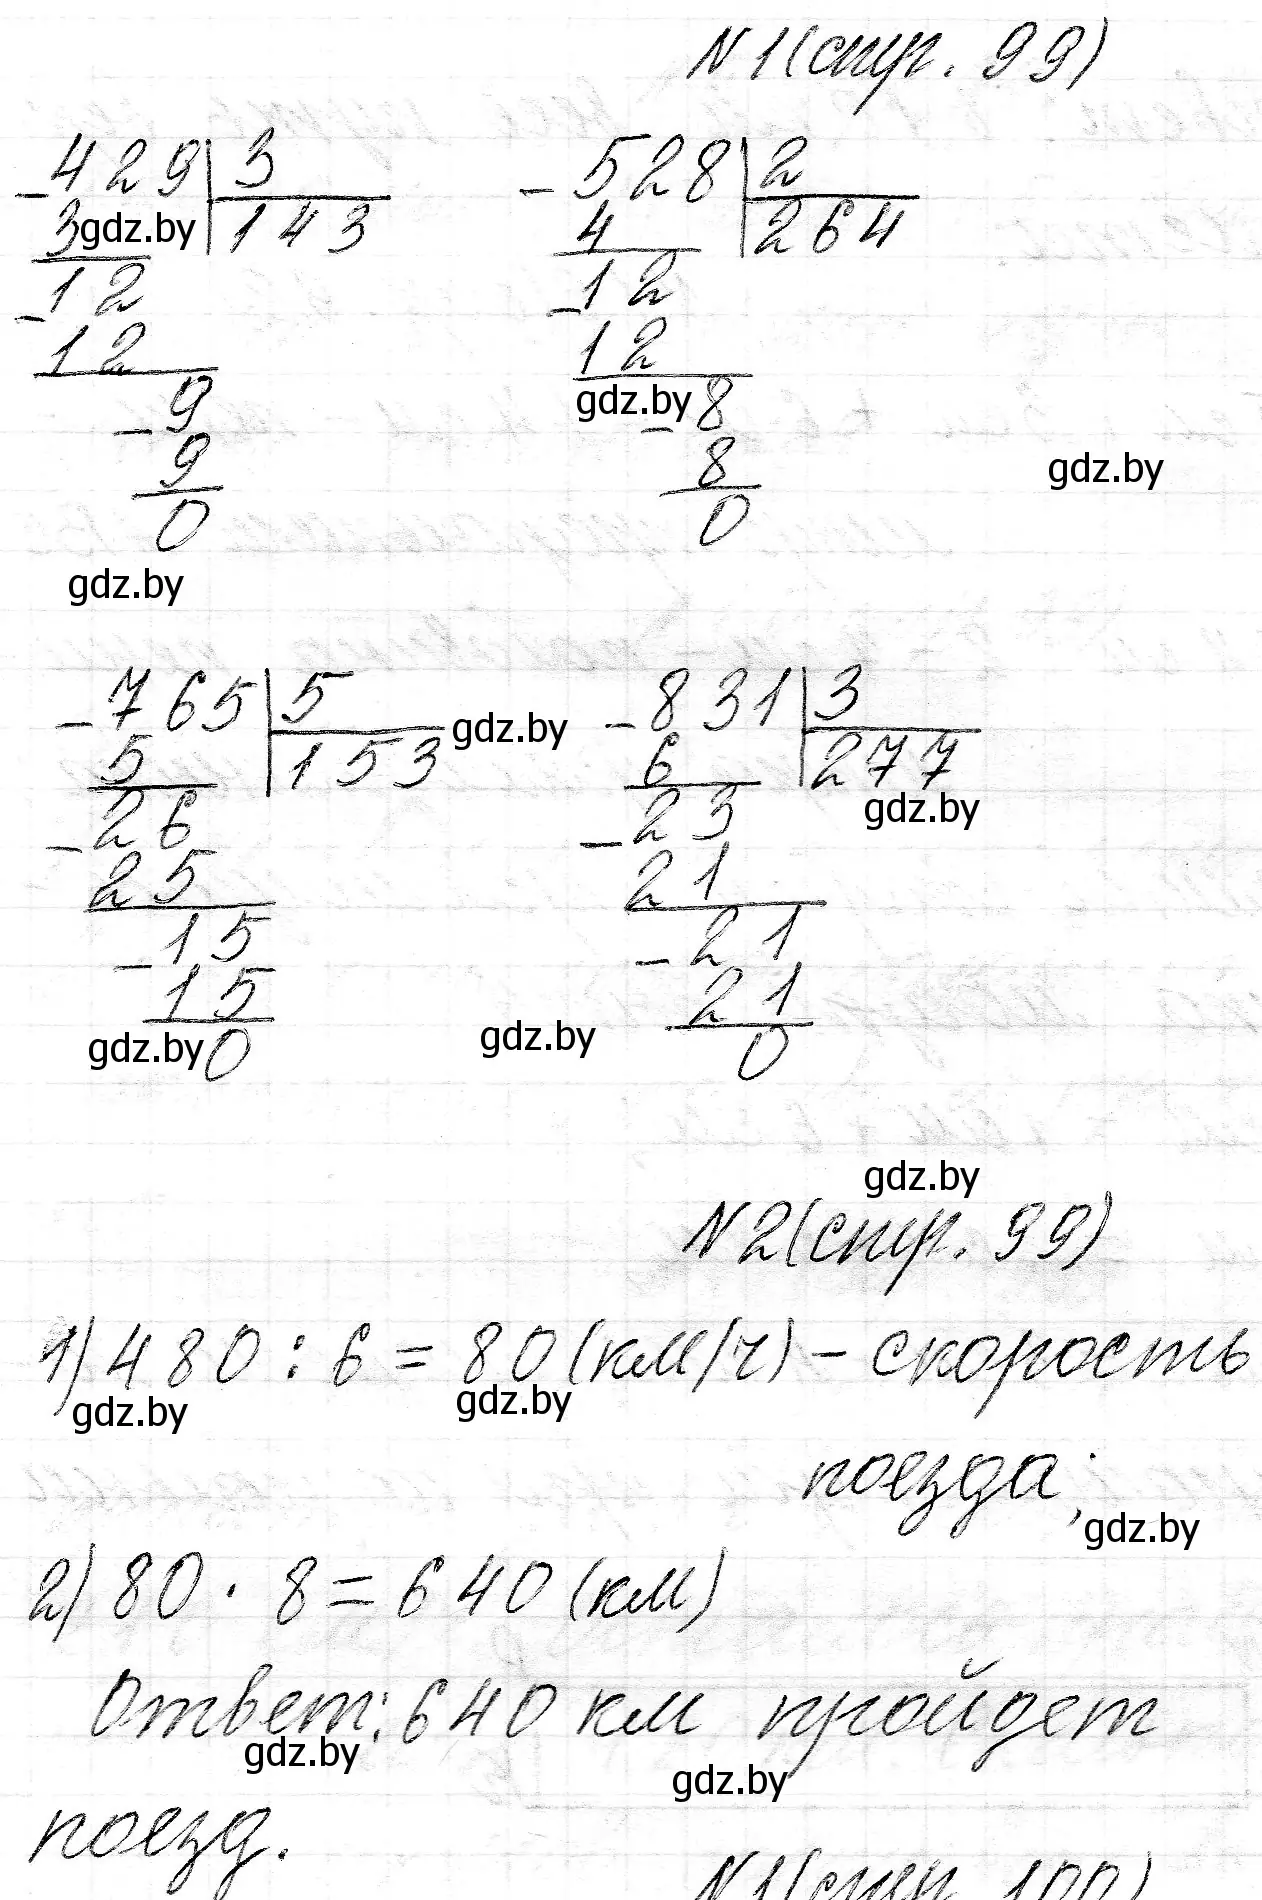 N 1 (стр. 99)
- 429 | 3
3 gdz.by | 143
- 12
12
- 9
9
0
gdz.by
- 528 | 2
4 | 264
- 12
12
gdz.by
- 8
8
0
gdz.by
- 765 | 5
5 | 153
- 26
25
- 15
15
gdz.by 0
gdz.by
- 831 | 3
6 | 277
gdz.by
- 23
21
- 21
21
0
gdz.by
gdz.by
N 2 (стр. 99)
1) 480 : 6 = 80 (км/ч) – скорость
gdz.by gdz.by
поезда;
gdz.by
2) 80 · 8 = 640 (км)
Ответ: 640 км пройдет
gdz.by gdz.by
поезд.
N 1 (стр. 100)